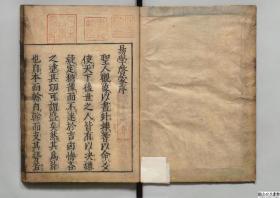 易學啓蒙序
聖人觀象以畫卦揲蓍以命爻
使天下後世之人皆有以決嫌
疑定猶豫而不迷於吉凶悔吝
之塗其功可謂盛矣然其為卦
也自本而榦自榦而支其勢若